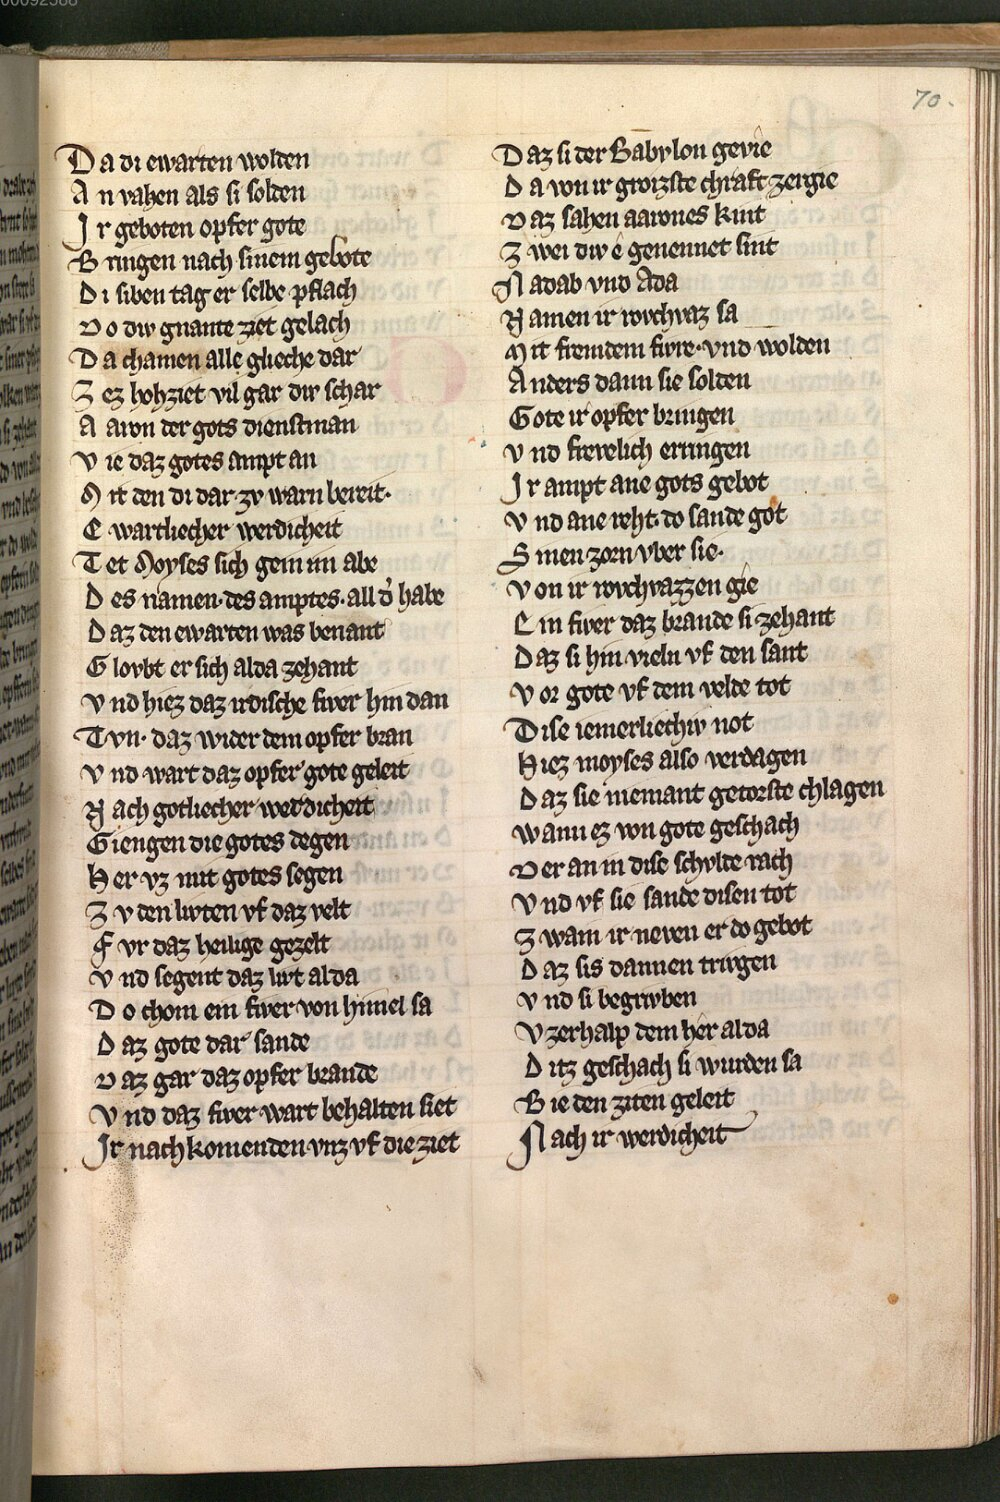 00092588
70.
Da di ewarten wolden
An vahen als si solden
Ir geboten opfer gote
Bringen nach sinem gebote
Di siben tag er selbe pflach
Vo div gnante ziet gelach
Da chamen alle glieche dar
Zez hohziet vil gar div schar
Aaron der gots dienstman
Vie daz gotes ampt an
Mit den di dar zv warn bereit·
Ewartliecher werdicheit
Tet Moyses sich gein im abe
Des namen·des amptes·all d' habe
Daz den ewarten was benant
Glovbt er sich alda zehant
Vnd hiez daz irdische fiwer hin dan
Tvn· daz wider dem opfer bran
Vnd wart daz opfer gote geleit
Nach gotliecher werdicheit
Giengen die gotes degen
Her vz mit gotes segen
Zv den livten vf daz velt
Fvr daz heilige gezelt
Vnd segent daz livt alda
Do chom ein fiwer von himel sa
Daz gote dar sande
Vaz gar daz opfer brande
Vnd daz fiwer wart behalten siet
Ir nach komenden vnz vf die ziet
Daz si der Babylon gevie
Da von ir groizste chraft zergie
Daz sahen aarones kint
Zwei div e genennet sint
Nadab vnd Ada
Namen ir rovchvaz sa
Mit fremdem fivre·vnd wolden
Anders dann sie solden
Gote ir opfer bringen
Vnd frevelich erringen
Ir ampt ane gots gebot
Vnd ane reht·do sande got
Sinen zorn vber sie·
Von ir rovchvazzen gie
Ein fiwer daz brande si zehant
Daz si hin vieln vf den sant
Vor gote vf dem velde tot
Dise iemerliechiv not
Hiez moyses also verdagen
Daz sie niemant getorste chlagen
Wann ez von gote geschach
Der an in dise schvlde rach
Vnd vf sie sande disen tot
Zwain ir neven er do gebot
Daz sis dannen trvgen
Vnd si begrvben
Vzerhalp dem her alda
Ditz geschach si wurden sa
Bie den ziten geleit
Nach ir werdicheit